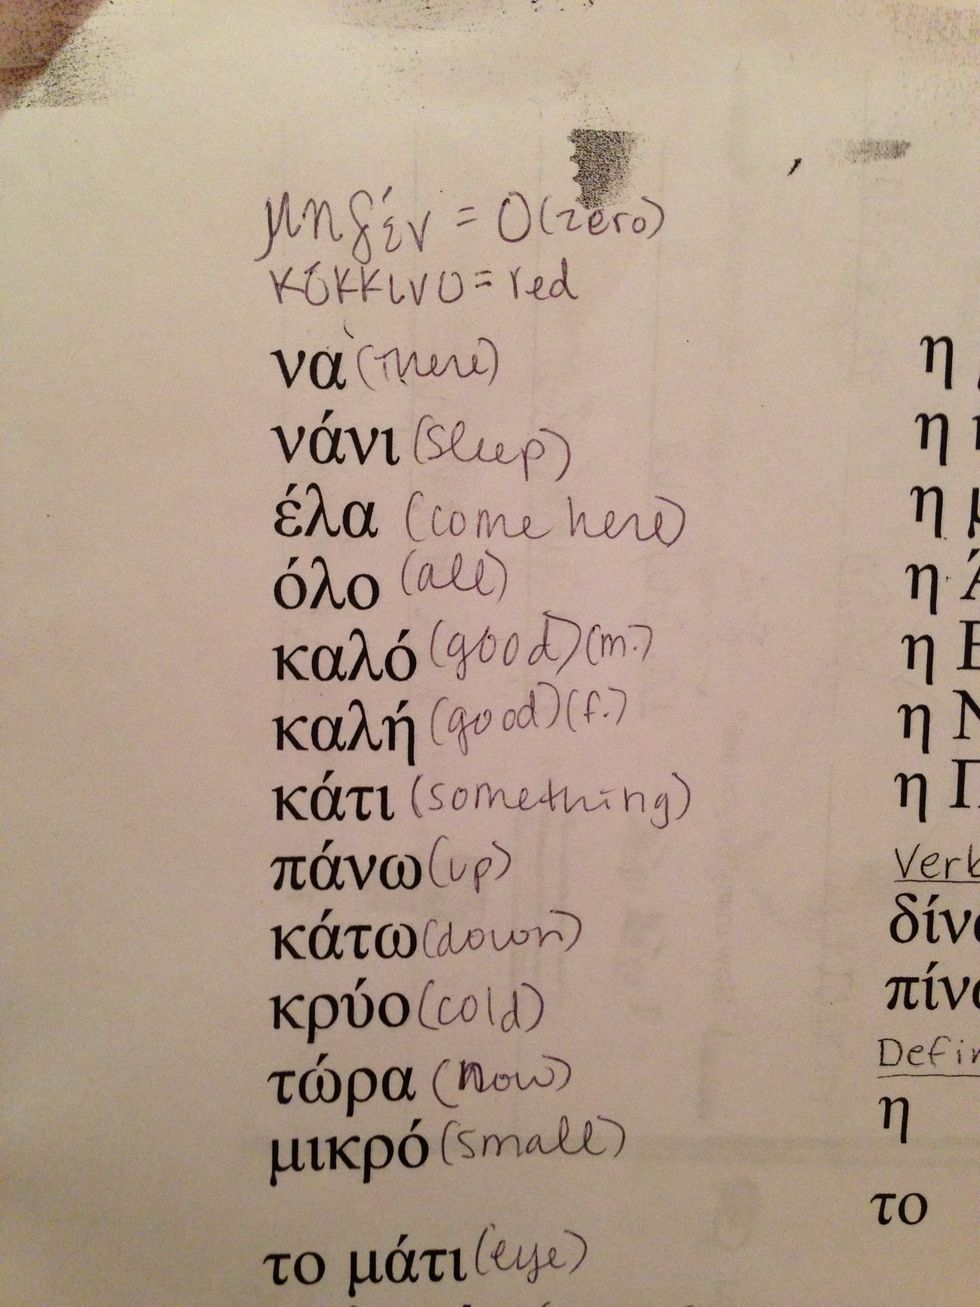 μηδέν = 0 (zero)
κόκκινο = red
να (There)
νάνι (sleep)
έλα (come here)
όλο (all)
καλό (good) (m.)
καλή (good) (f.)
κάτι (something)
πάνω (up)
κάτω (down)
κρύο (cold)
τώρα (now)
μικρό (small)
το μάτι (eye)
η
η
η
η
η
η
η
η
το